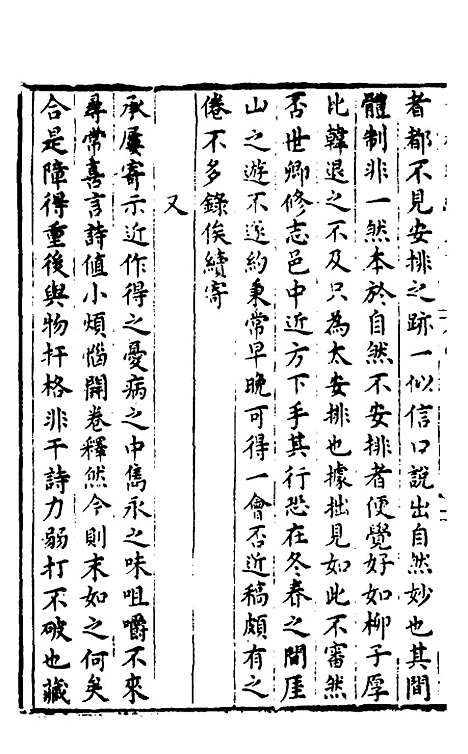 者都不見安排之跡一似信口說出自然妙也其間
體制非一然本於自然不安排者便覺好如柳子厚
比韓退之不及只為太安排也據拙見如此不審然
否世卿修志邑中近方下手其行恐在冬春之間厓
山之遊不遂約秉常早晚可得一會否近稿頗有之
倦不多錄俟續寄
又
承屢寄示近作得之憂病之中雋永之味咀嚼不來
尋常喜言詩值小煩惱開卷釋然今則末如之何矣
合是障得重後與物扞格非干詩力弱打不破也藏